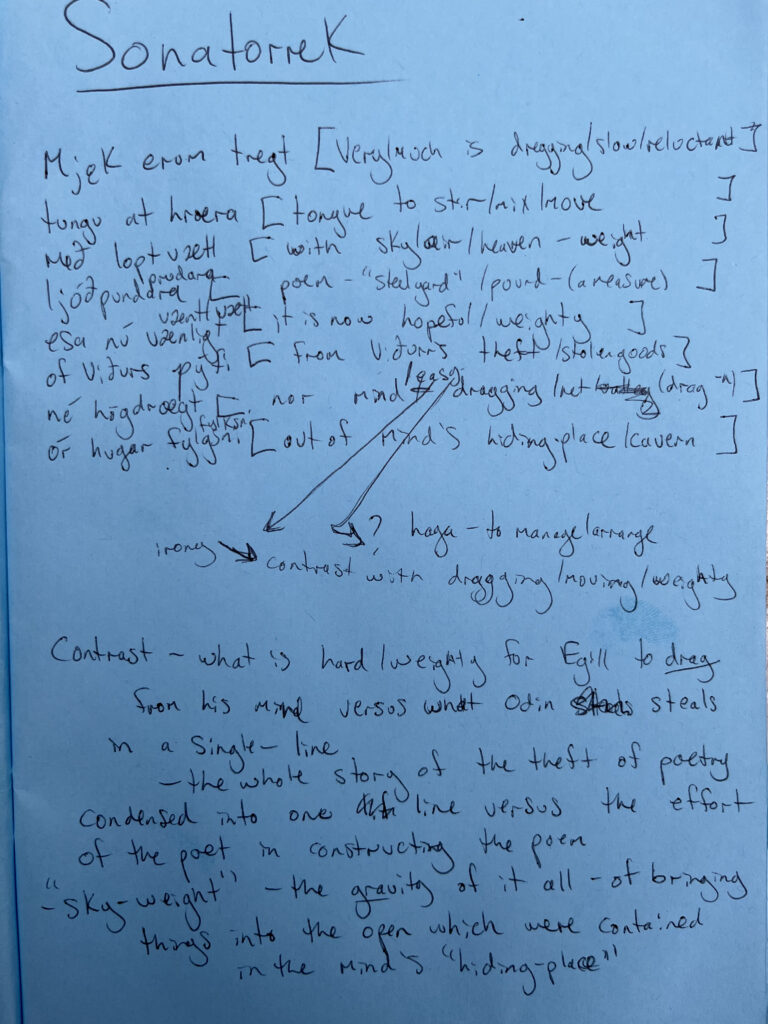 Sonatorrek
Mjek erom tregt [Very/Much is dragging/slow/reluctant]
tungu at hrœra [tongue to stir/mix/move ]
með loptvætt [ with sky/air/heaven - weight ]
pundara
ljóðpundara [ poem - "steelyard" / pound-(a measure) ]
vænt/vætt
esa nú vænligt [ it is now hopeful/weighty ]
of Viðurs þýfi [ from Viðurr's theft/stolen goods]
/easy
né hógdrœgt [ nor mind dragging/net (drag-n) ]
fylksni
ór hugar fylgsni [out of mind's hiding-place/cavern ]
? haga - to manage/arrange
irony
contrast with dragging/moving/weighty
Contrast - what is hard/weighty for Egill to drag
from his mind versus what Odin steals
in a single-line
- the whole story of the theft of poetry
condensed into one line versus the effort
of the poet in constructing the poem
- "sky-weight" - the gravity of it all - of bringing
things into the open which were contained
in the mind's "hiding-place"